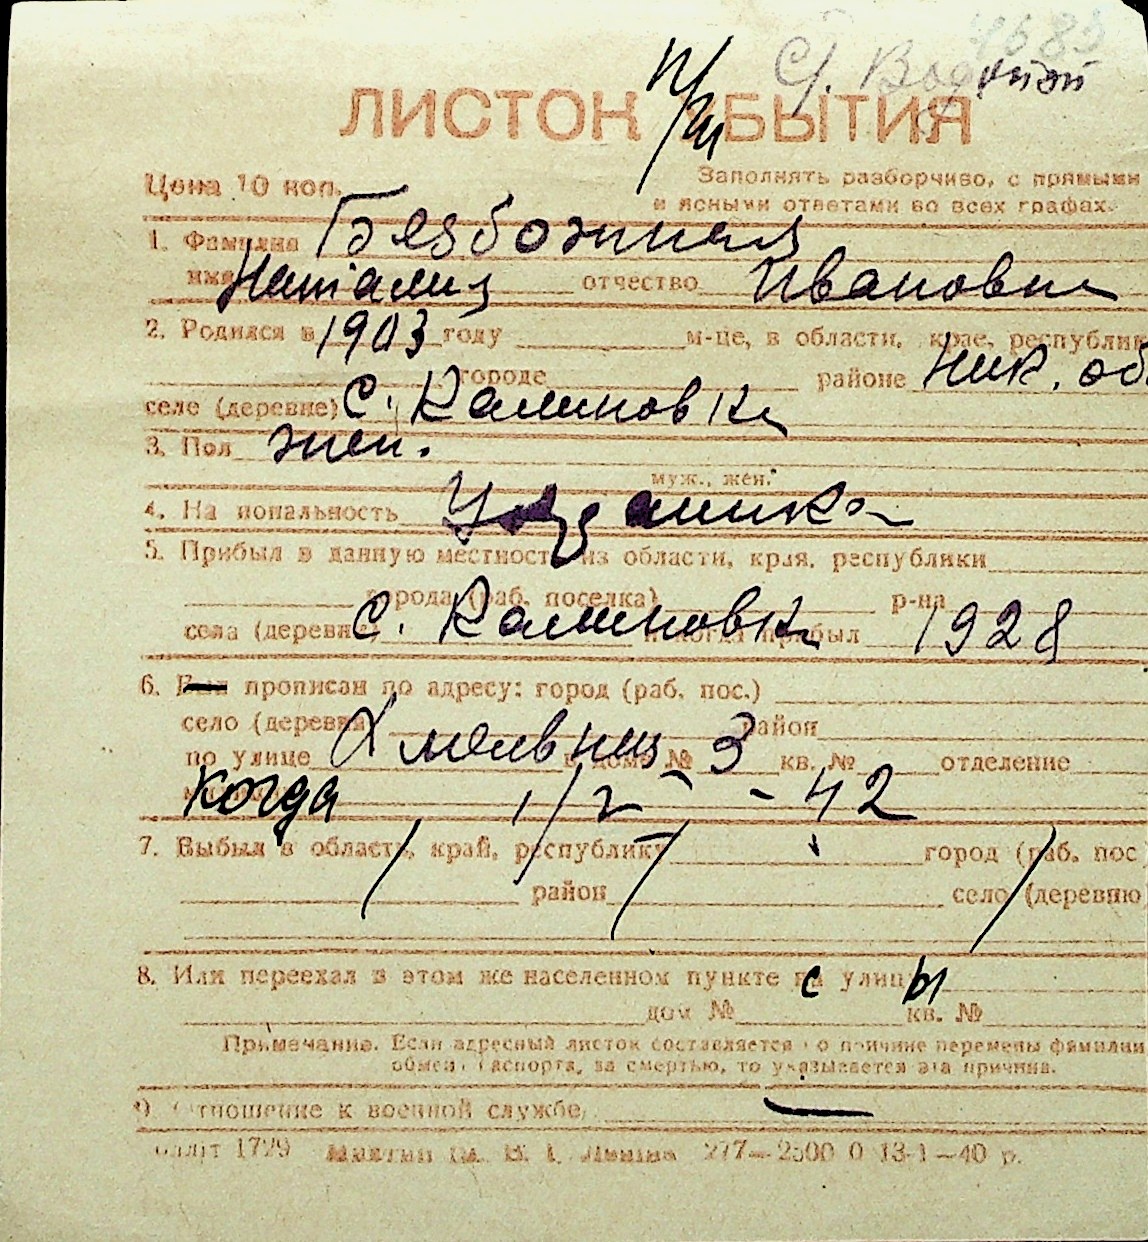 4683
С/. Водяной
ЛИСТОК УБЫТИЯ
При
Цена 10 коп.
Заполнять разборчиво, с прямыми
и ясными ответами во всех графах.
1. Фамилия Безбожная
имя Наталия отчество Ивановна
2. Родился в 1903 году м-це, в области, крае, республик
городе районе Ник. об
селе (деревне) с. Калиновка
3. Пол жен.
муж., жен.
4. Национальность Украинка
5. Прибыл в данную местность из области, края, республики
города (раб. поселка) р-на
села (деревни) с. Калиновка и когда прибыл 1928
6. Был прописан по адресу: город (раб. пос.)
село (деревня) район
по улице дом № 3 кв. № отделение
когда 1/2 - 42
7. Выбыл в область, край, республику город (раб. пос
район село (деревню
8. Или переехал в этом же населенном пункте с улицы
дом № кв. №
Примечание. Если адресный листок составляется по причине перемены фамилии
обмена паспорта, за смертью, то указывается эта причина.
9. Отношение к военной службе —
1799 им. В. І. Леніна 277—2500 0 13-1—40 р.